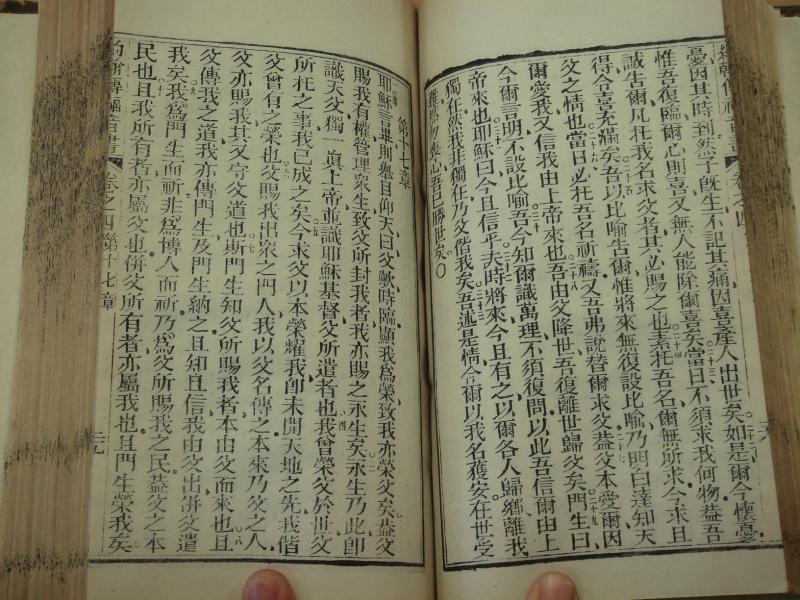 憂因其時到然子旣生不記其痛因喜產人出世矣如是爾今懷憂
惟吾復臨爾心則喜又無人能除爾喜矣當日不須求我何物葢吾
誠告爾凡托我名求父者其必賜之也素托吾名爾無所求今求且
得令喜充滿矣吾以比喻告爾惟將來無復設比喻乃明白達知天
父之情也當日必托吾名祈禱又吾弗說替爾求父葢父本愛爾因
爾愛我又信我由上帝來也吾由父降世吾復離世歸父矣門生曰
今爾言明不設比喻吾今知爾識萬理不須復問以此吾信爾由上
帝來也耶穌曰今且信乎夫時將來今且有之以爾各人歸鄉離我
獨在然我非獨在乃父偕我矣吾述是情令爾以我名獲安在世受
難然勿喪心吾已勝世矣〇
第十七章
耶穌言畢則舉目仰天曰父歟時臨顯我爲榮致我亦榮父矣葢父
賜我有權管理衆生致父所封我者我亦賜之永生矣永生乃此卽
識天父獨一眞上帝並識耶穌基督父所遣者也我曾榮父於世父
所托之事我已成之矣今求父以本榮耀我卽未開天地之先我偕
父曾有之榮也父賜我出衆之門人我以父名傳之本來乃父之人
父亦賜我其又守父道也斯門生知父所賜我者本由父而來也且
父傳我之道我亦傳門生及門生納之且知且信我由父出併父遣
我矣我爲門生而祈非爲博人而祈乃爲父所賜我之民葢父之本
民也且我所有者亦屬父也併父所有者亦屬我也且門生榮我矣
約翰傳福音書 卷之四第十七章 三九